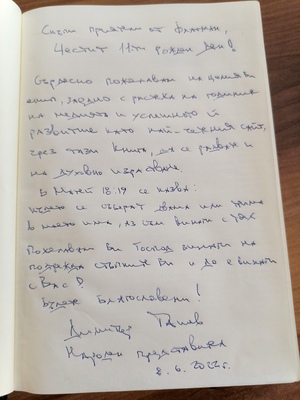 Скъпи приятели от Флагман,
Честит 11ти рожден ден!
Сърдечно пожелавам на целия
екип, заедно с растежа на годините
на медията и успешното ѝ
развитие като най- сайт,
чрез тази книга, да се развива и
на духовно израстване.
В Матей 18:19 се казва:
където се събрат двама или трима
в мое име, аз съм винаги с тях
Пожелавам Ви Господ винаги да
подрежда стъпките Ви и да е винаги
с Вас!
Бъдете благословени!
Димитър
Народен представител
8.6.2022г.